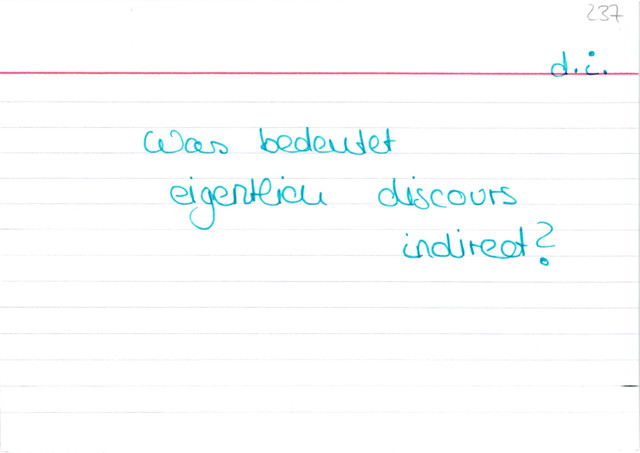 237
d.i.
Was bedeutet
eigentlich discours
indirect?